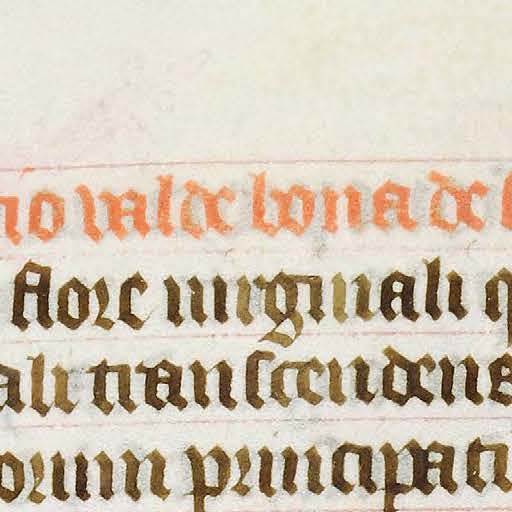 no valde bona de
flore uirginali
ali transcendens
orum principati